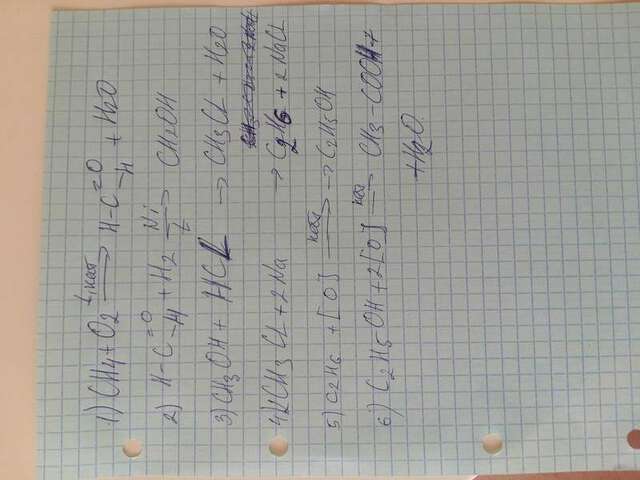 1) CH4 + O2 t, кат → H-C=O -H + H2O
2) H-C=O -H + H2 Ni t → CH2OH
3) CH3OH + HCl → CH3Cl + H2O
4) 2CH3Cl + 2Na → C2H6 + 2NaCl
5) C2H6 + [O] кат → C2H5OH
6) C2H5OH + 2[O] кат → CH3-COOH +
+ H2O